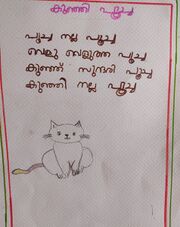 കുഞ്ഞി പൂച്ച
പൂച്ച നല്ല പൂച്ച
വെളു വെളുത്ത പൂച്ച
കുഞ്ഞ് സുന്ദരി പൂച്ച
കുഞ്ഞി നല്ല പൂച്ച